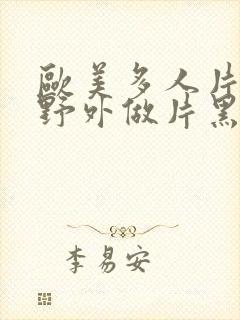 歐美多人片
野外做片黑
李易安